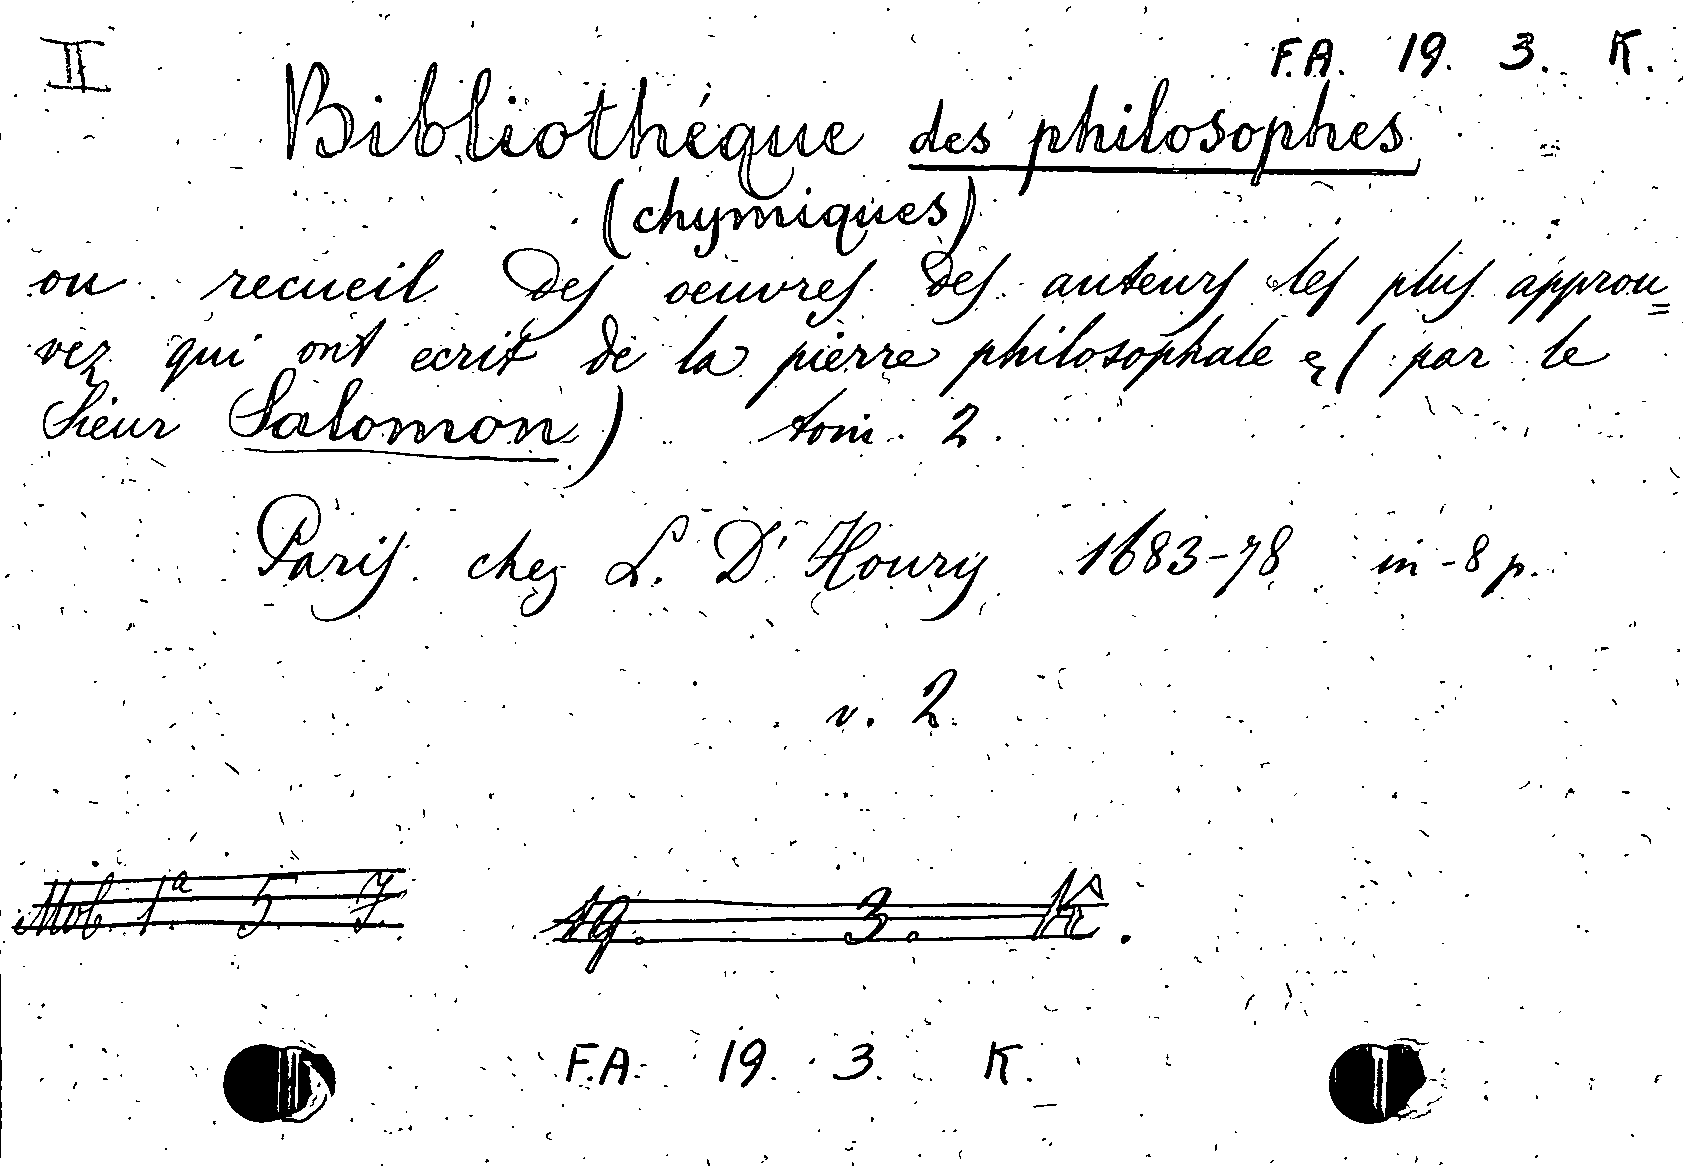 II
F.A. 19. 3. K.
Bibliothéque des philosophes
(chymiques)
ou recueil des oeuvres des auteurs les plus approu=
vez qui ont ecrit de la pierre philosophale &( par le
Sieur Salomon) tom. 2.
Paris chez L. D'Houry 1683-78 in-8 p.
v. 2
Mob. 1.a 5 7.
19. 3. K.
F.A. 19. 3. K.